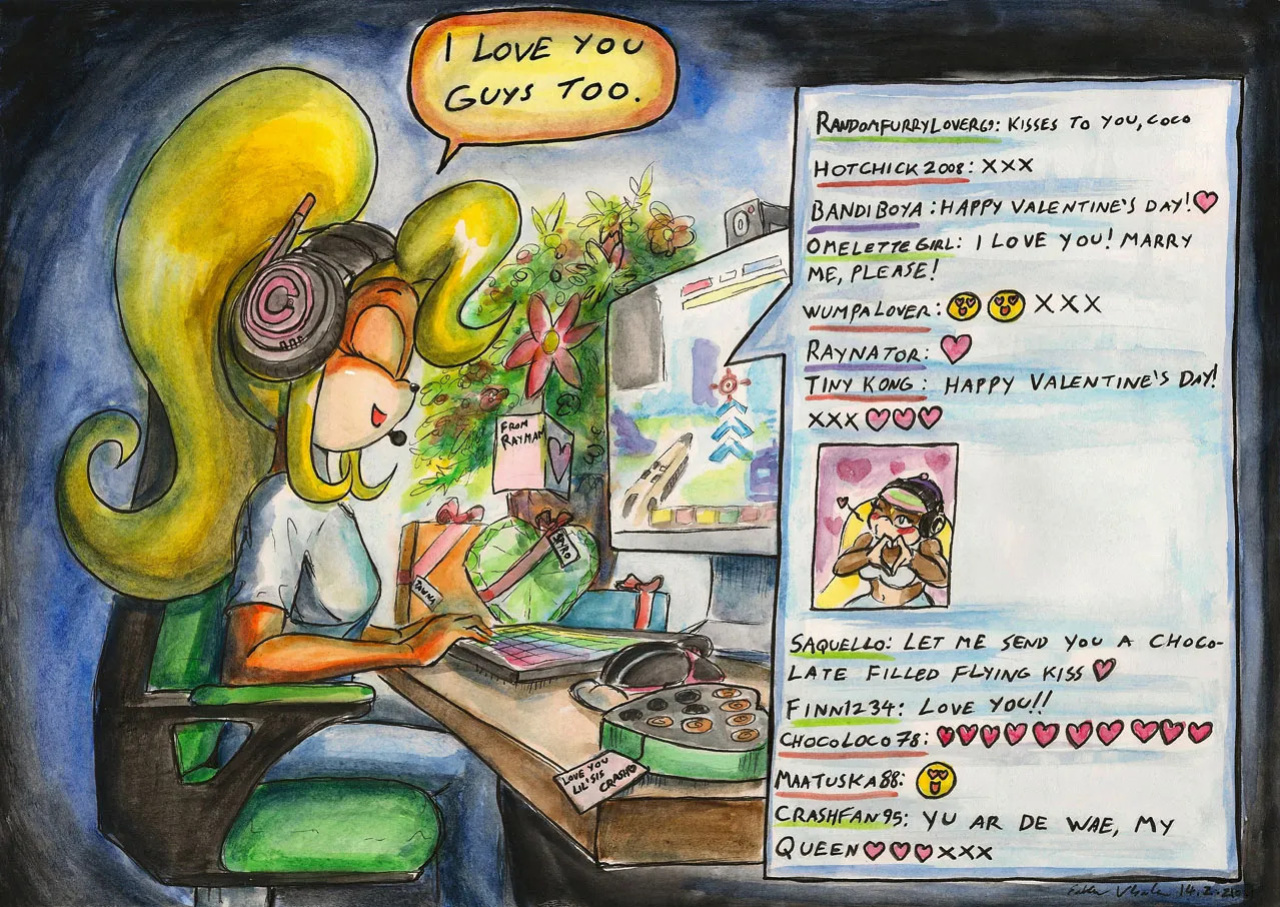 I LOVE YOU
GUYS TOO.
RANDOMFURRYLOVER69: KISSES TO YOU, COCO
HOTCHICK2008: XXX
BANDIBOYA: HAPPY VALENTINE'S DAY!
OMELETTEGIRL: I LOVE YOU! MARRY
ME, PLEASE!
WUMPALOVER: XXX
RAYNATOR:
TINY KONG: HAPPY VALENTINE'S DAY!
XXX
SAQUELLO: LET ME SEND YOU A CHOCO-
LATE FILLED FLYING KISS
FINN1234: LOVE YOU!!
CHOCOLOCO78:
MAATUSKA88:
CRASHFAN95: YU AR DE WAE, MY
QUEEN XXX
C
FROM
RAYMAN
SPYRO
TAWNA
LOVE YOU
LIL' SIS
CRASH
14.2.